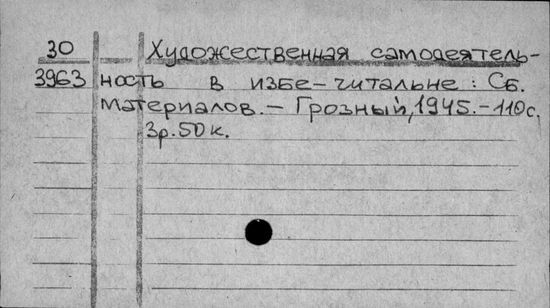 30 Художественная самодеятель-
3963 ность в избе-читальне: Сб.
материалов.- Грозный, 1945.-110с.
3р.50к.